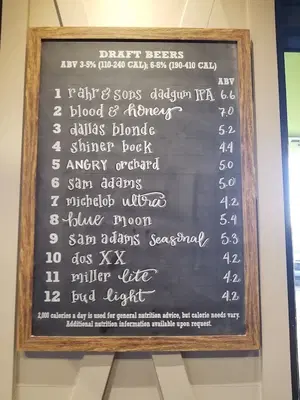 DRAFT BEERS
ABV 3-5% (110-240 CAL); 6-8% (190-410 CAL)
ABV
1 rahr & sons dadgum IPA 6.6
2 blood & honey 7.0
3 dallas blonde 5.2
4 shiner bock 4.4
5 ANGRY orchard 5.0
6 sam adams 5.0
7 michelob ultra 4.2
8 blue moon 5.4
9 sam adams seasonal 5.3
10 dos XX 4.2
11 miller lite 4.2
12 bud light 4.2
2,000 calories a day is used for general nutrition advice, but calorie needs vary.
Additional nutrition information available upon request.